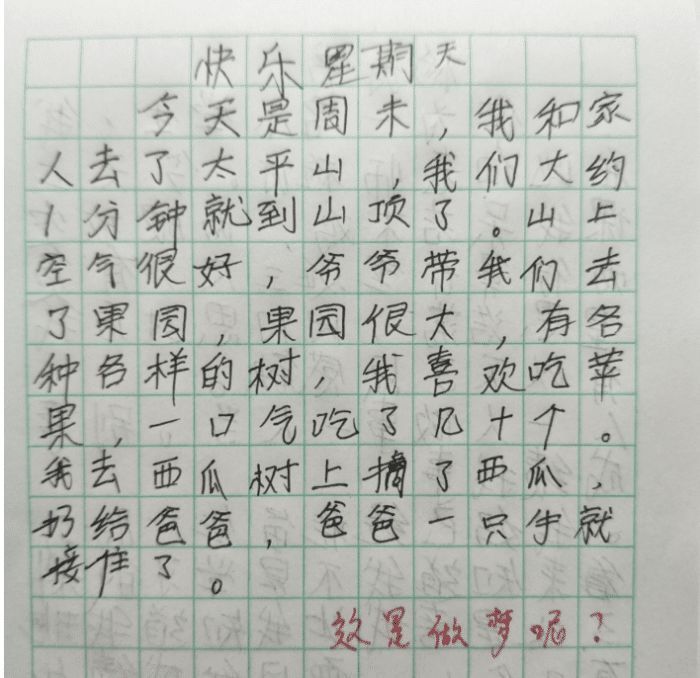 快乐星期天
今天是周末，我和家
人去了太平山，我们大约
1分钟就到山顶了。山上
空气很好，爷爷带我们去
了果园，果园很大，有各
种各样的树，我喜欢吃苹
果，一口气吃了几十个。
我去西瓜树上摘了西瓜，
扔给爸爸，爸爸一只手就
接住了。
这是做梦呢？